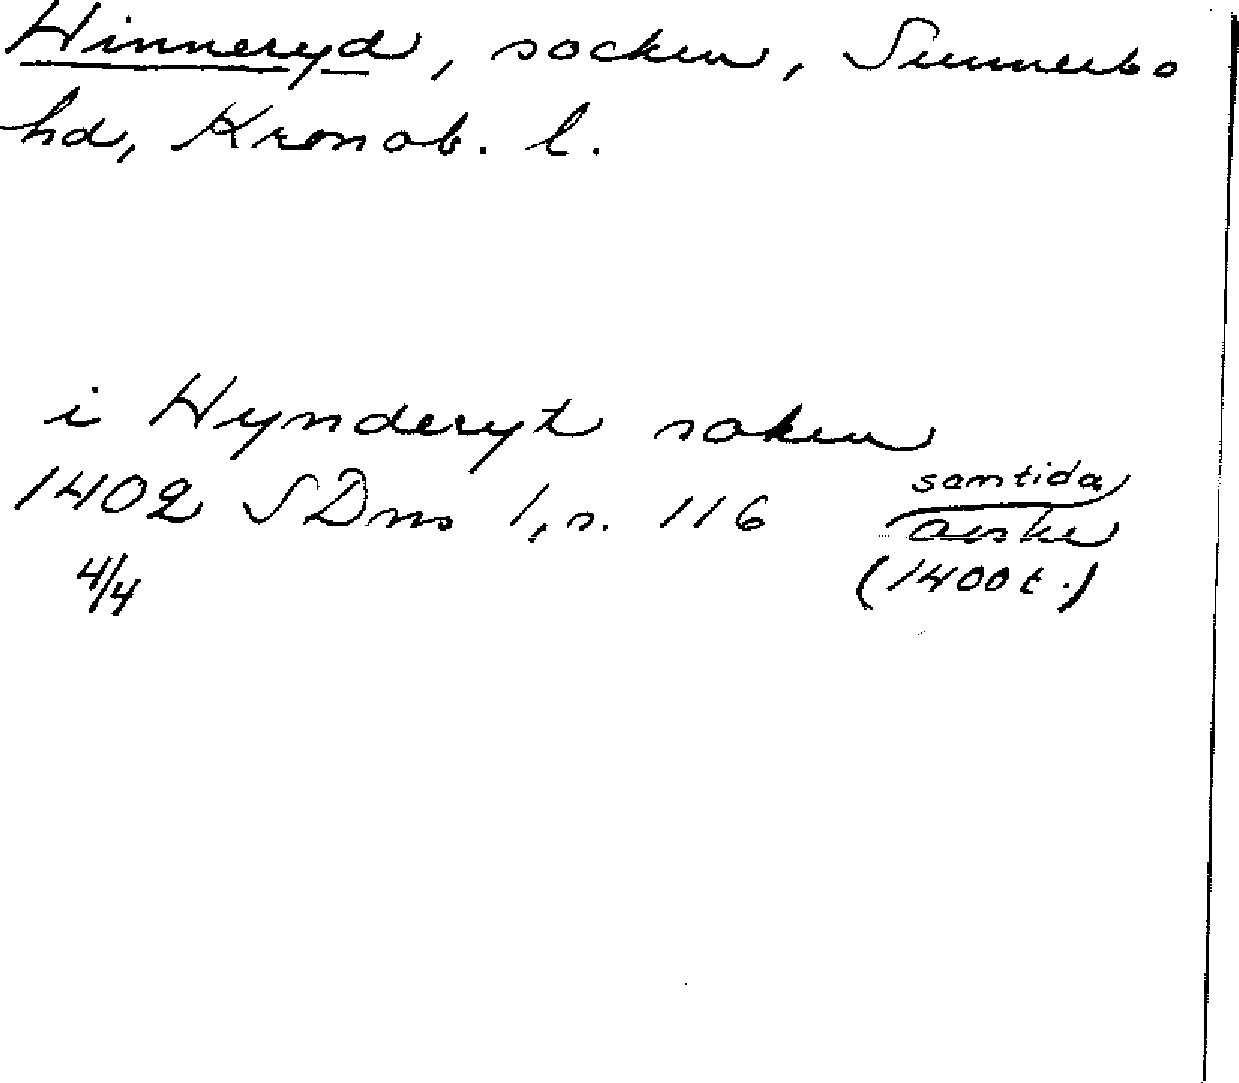 Hinneryd, socken, Sunnerbo
hd, Kronob. l.
i Hynderyt soken
1402 SDns 1, s. 116 samtida
4/4 avskr
(1400t.)